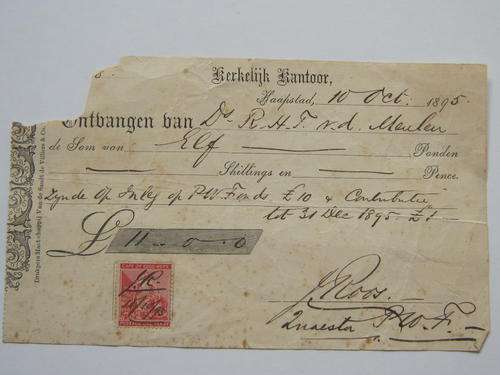 Kerkelijk Kantoor,
Kaapstad, 10 Oct: 1895.
Ontbangen van Ds R. H. T. v. d. Meulen
de Som van Elf Ponden
Shillings en Pence
Zynde op Inleg op P.W. Fonds £10 & Contributie
tot 31 Dec 1895 - £1 -
£ 11 - 0 - 0
J. Roos.
Quaestor P. W. F. -
Drukpers Maatschappij Van de Sandt de Villiers & Co.
CAPE OF GOOD HOPE
J.R.